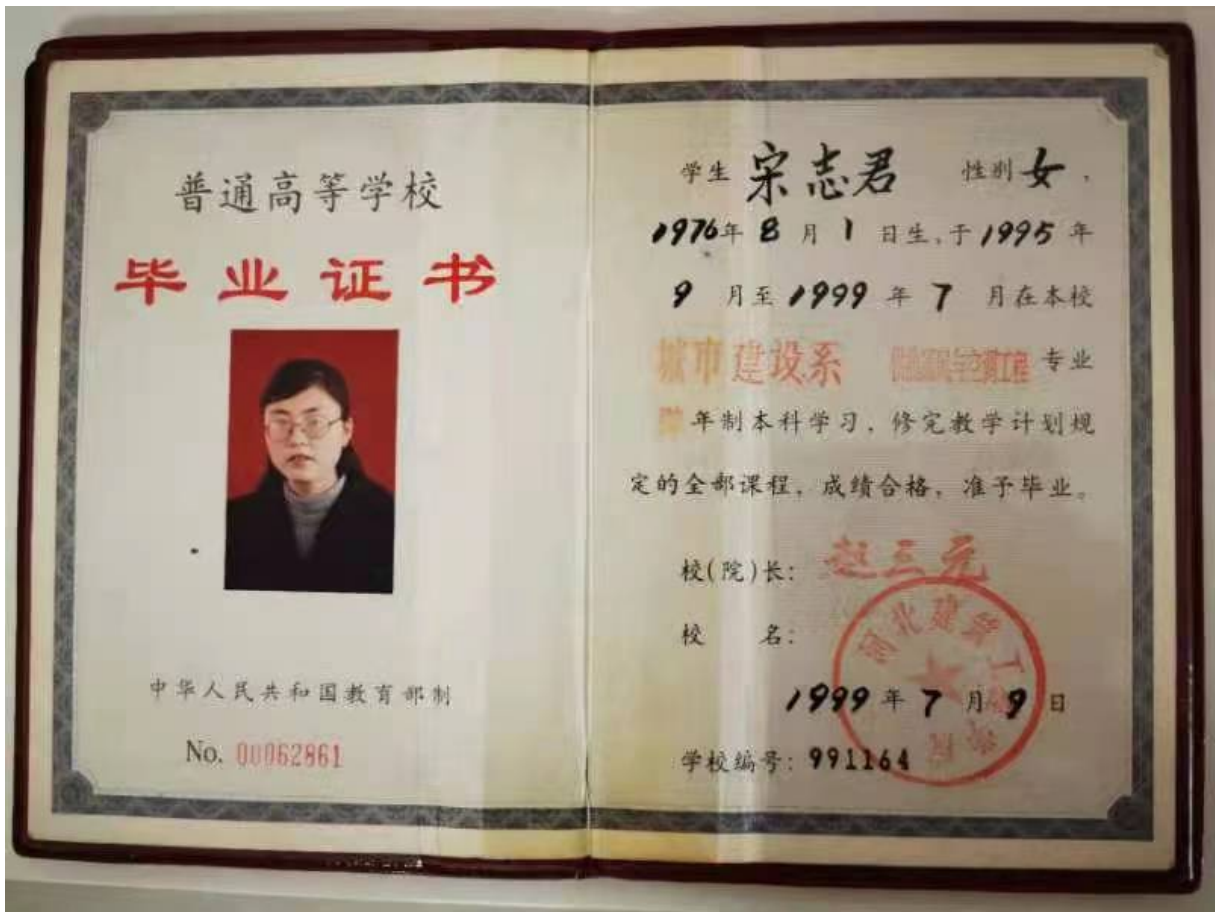 普通高等学校
毕业证书
中华人民共和国教育部制
No. 00062861
学生 宋志君 性别 女，
1976年 8 月 1 日生,于 1995 年
9 月至 1999 年 7 月在本校
城市建设系 供热通风与空调工程 专业
年制本科学习，修完教学计划规
定的全部课程，成绩合格，准予毕业。
校(院)长: 赵三元
校 名:
河北建筑工程学院
1999 年 7 月 9 日
学校编号: 991164